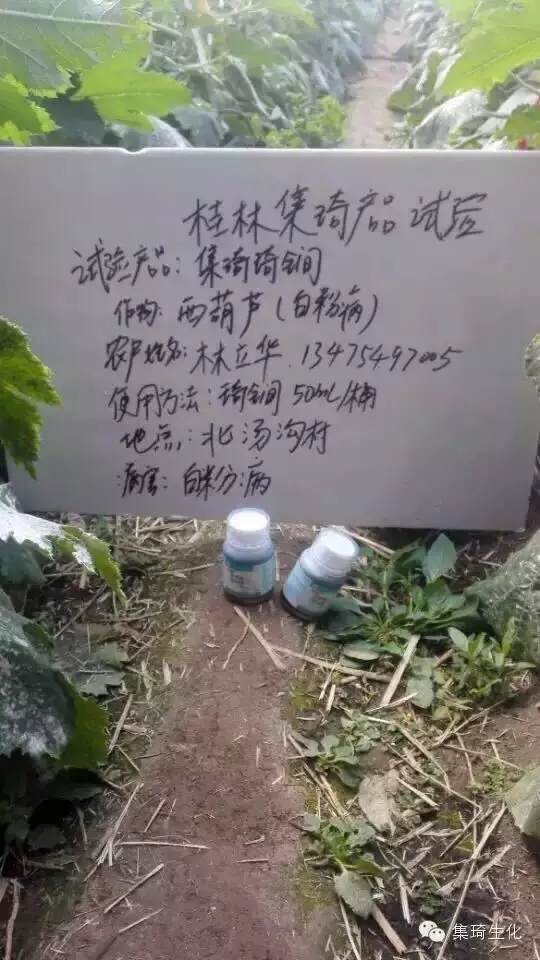 桂林集琦产品试验
试验产品：集琦琦锏
作物：西葫芦（白粉病）
农户姓名：林立华 13475497005
使用方法：琦锏 50mL/桶
地点：北汤沟村
病害：白粉病
集琦生化